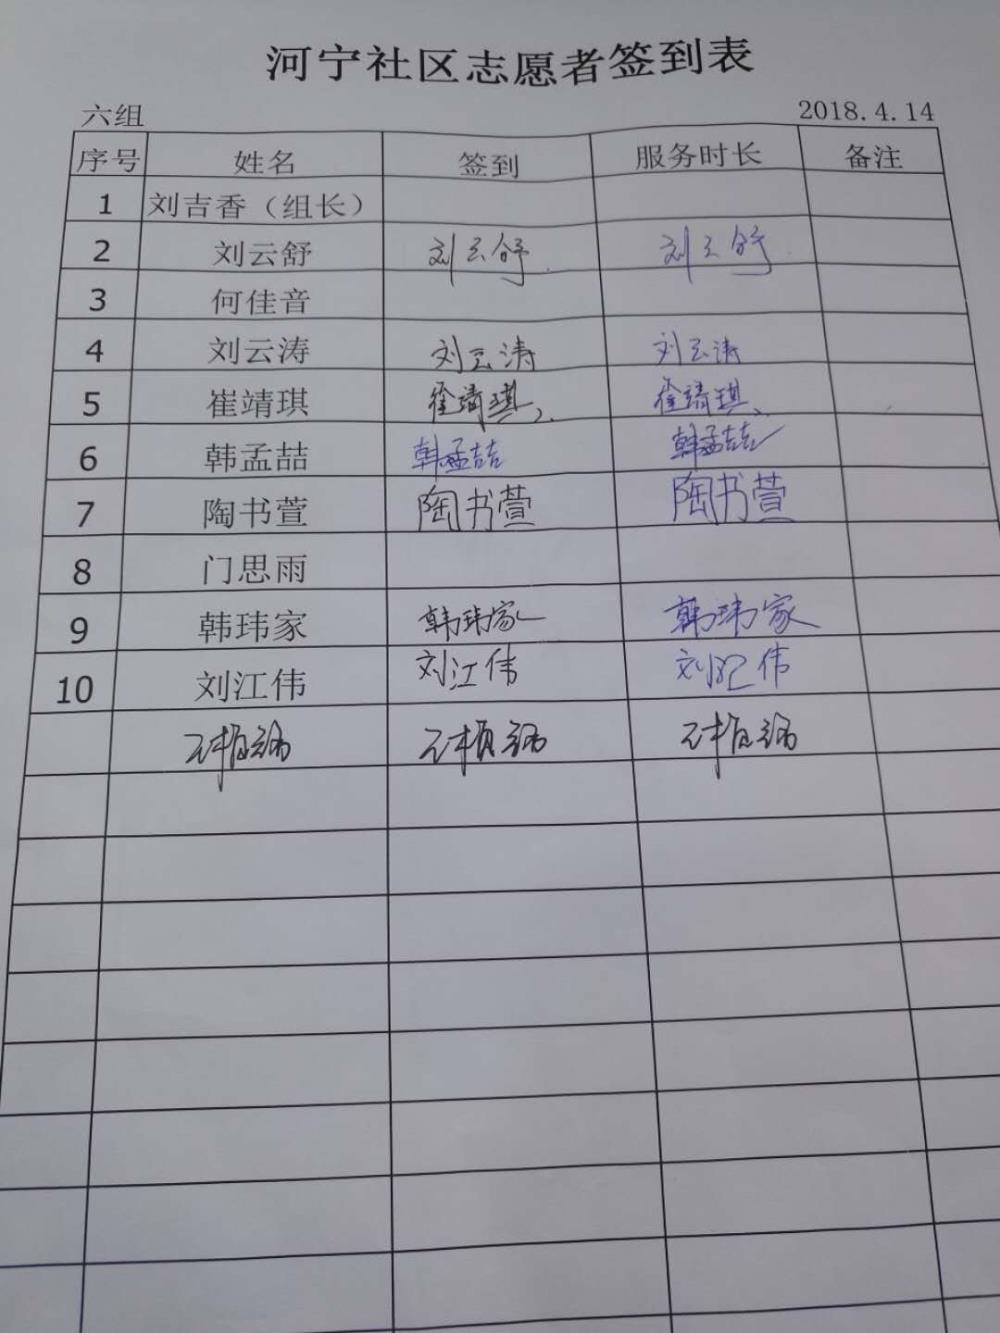 河宁社区志愿者签到表
六组 2018.4.14
序号 姓名 签到 服务时长 备注
1 刘吉香（组长）
2 刘云舒 刘云舒 刘云舒
3 何佳音
4 刘云涛 刘云涛 刘云涛
5 崔靖琪 崔靖琪 崔靖琪
6 韩孟喆 韩孟喆 韩孟喆
7 陶书萱 陶书萱 陶书萱
8 门思雨
9 韩玮家 韩玮家 韩玮家
10 刘江伟 刘江伟 刘江伟